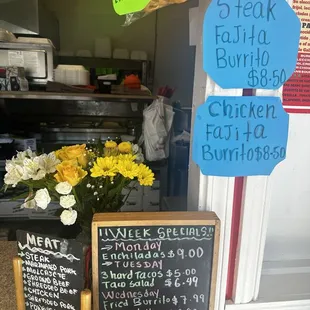 Steak
Fajita
Burrito
$8.50
Chicken
Fajita
Burrito $8.50
MEAT
STEAK
MARINATED PORK
MOLCAJETE
GROUND BEEF
SHREDDED BEEF
CHICKEN
SHREDDED PORK
!!WEEK SPECIALS!!
→Monday
Enchiladas $9.00
→TUESDAY
3 hard Tacos $5.00
Taco salad $6.49
Wednesday
Fried Burrito $7.99